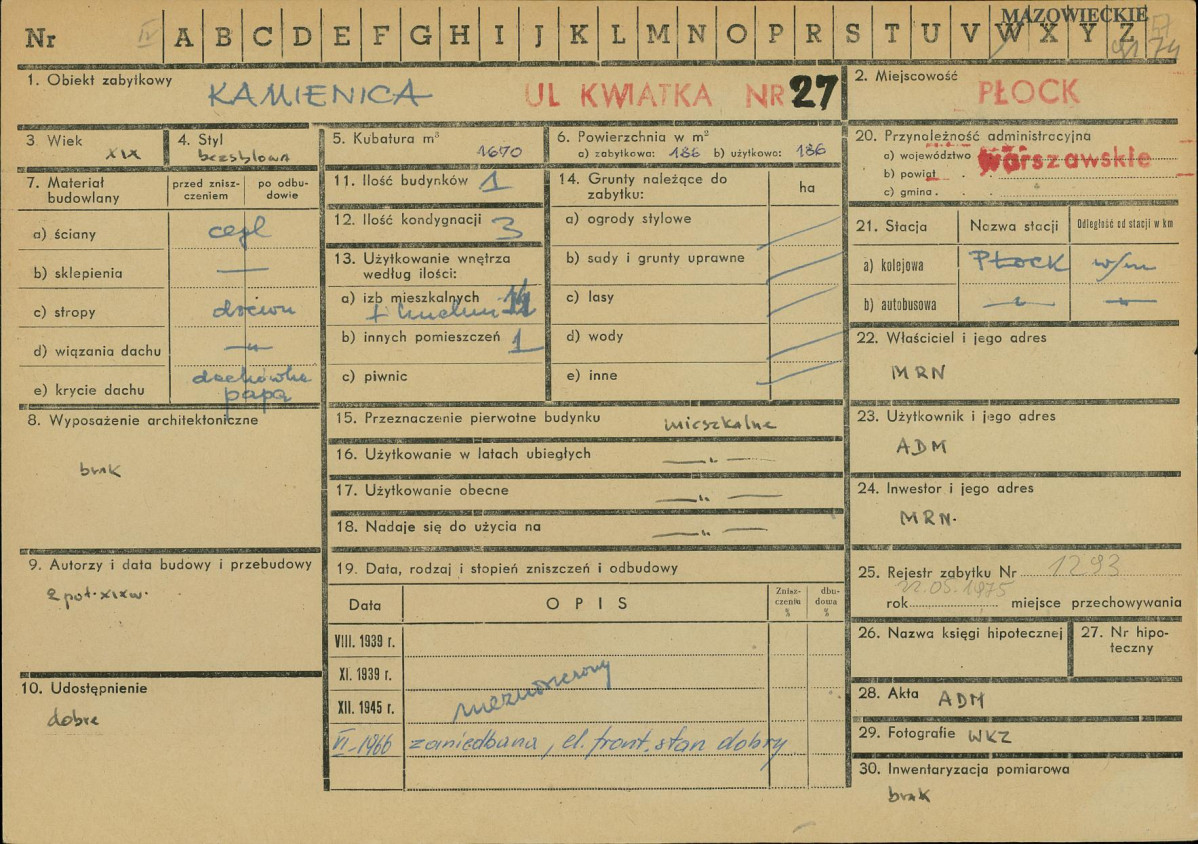 Nr IV A B C D E F G H I J K L M N O P R S T U V W X Y Z MAZOWIECKIE
1. Obiekt zabytkowy KAMIENICA UL KWIATKA NR 27
2. Miejscowość PŁOCK
3 Wiek XIX
4. Styl bezstylowa
5. Kubatura m³ 1670
6. Powierzchnia w m²
a) zabytkowa: 186 b) użytkowa: 186
7. Materiał budowlany
przed znisz-czeniem
po odbu-dowie
a) ściany cegl
b) sklepienia —
c) stropy drewn
d) wiązania dachu —"—
e) krycie dachu dachówka
papa
8. Wyposażenie architektoniczne
brak
9. Autorzy i data budowy i przebudowy
2 poł. XIX w.
10. Udostępnienie
dobre
11. Ilość budynków 1
12. Ilość kondygnacji 3
13. Użytkowanie wnętrza
według ilości:
a) izb mieszkalnych
b) innych pomieszczeń 1
c) piwnic
14. Grunty należące do
zabytku:
ha
a) ogrody stylowe
b) sady i grunty uprawne
c) lasy
d) wody
e) inne
15. Przeznaczenie pierwotne budynku mieszkalne
16. Użytkowanie w latach ubiegłych —"—
17. Użytkowanie obecne —"—
18. Nadaje się do użycia na —"—
19. Data, rodzaj i stopień zniszczeń i odbudowy
Data OPIS
Znisz-czeniu %
dbu-dowa %
VIII. 1939 r.
XI. 1939 r.
niezniszczony
XII. 1945 r.
VI-1966 zaniedbana, el. front. stan dobry
20. Przynależność administracyjna
a) województwo Warszawskie
b) powiat
c) gmina
21. Stacja Nazwa stacji Odległość od stacji w km
a) kolejowa PŁOCK w/m
b) autobusowa —"— —"—
22. Właściciel i jego adres
MRN
23. Użytkownik i jego adres
ADM
24. Inwestor i jego adres
MRN.
25. Rejestr zabytku Nr 1293
22.05.1975
rok miejsce przechowywania
26. Nazwa księgi hipotecznej
27. Nr hipo-
teczny
28. Akta ADM
29. Fotografie WKZ
30. Inwentaryzacja pomiarowa
brak